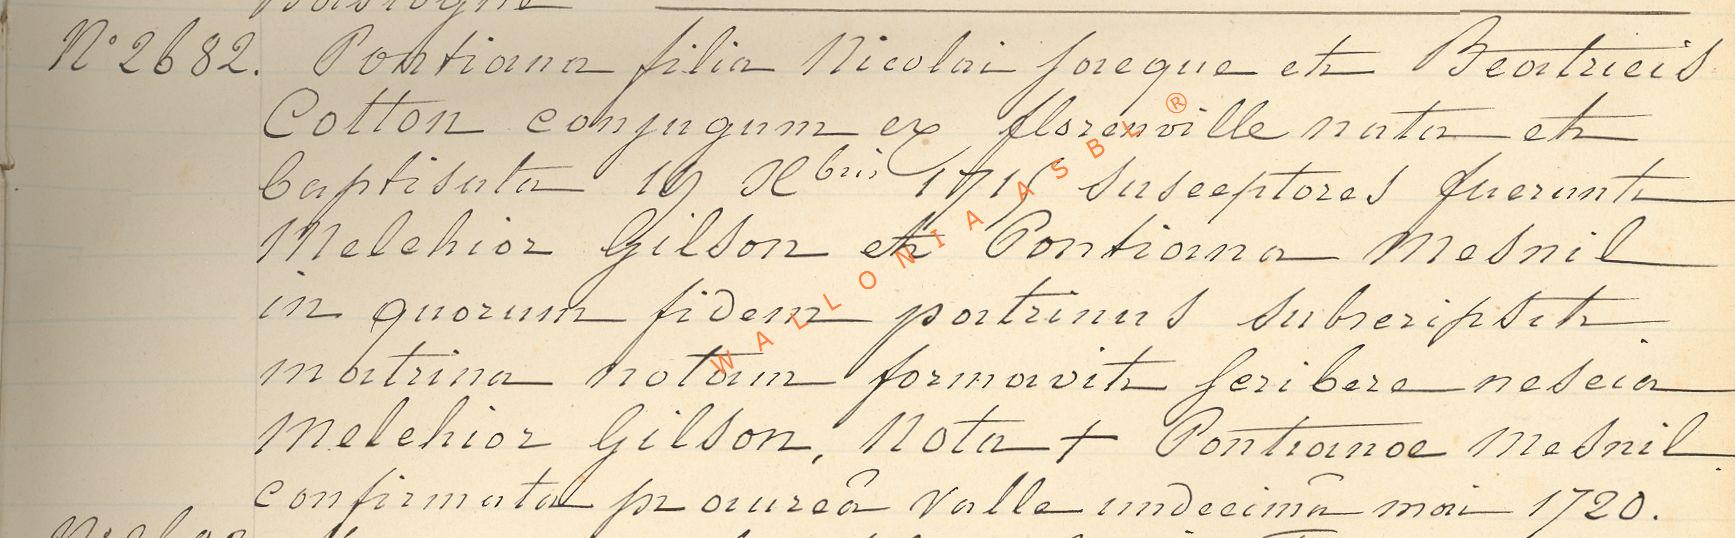 Bastogne
N° 2682. Pontiana filia Nicolai Jacque et Beatricis
Cotton conjugum ex florenville nata et
baptisata 19 Xbris 1716 susceptores fuerunt
Melchior Gilson et Pontiana Mesnil
in quorum fidem patrinus subscripsit
matrina notam formavit scribere nescia
Melchior Gilson, Nota + Pontianae Mesnil
confirmata pr aureâ valle undecimâ mai 1720.
WALLONIA ASBL ®